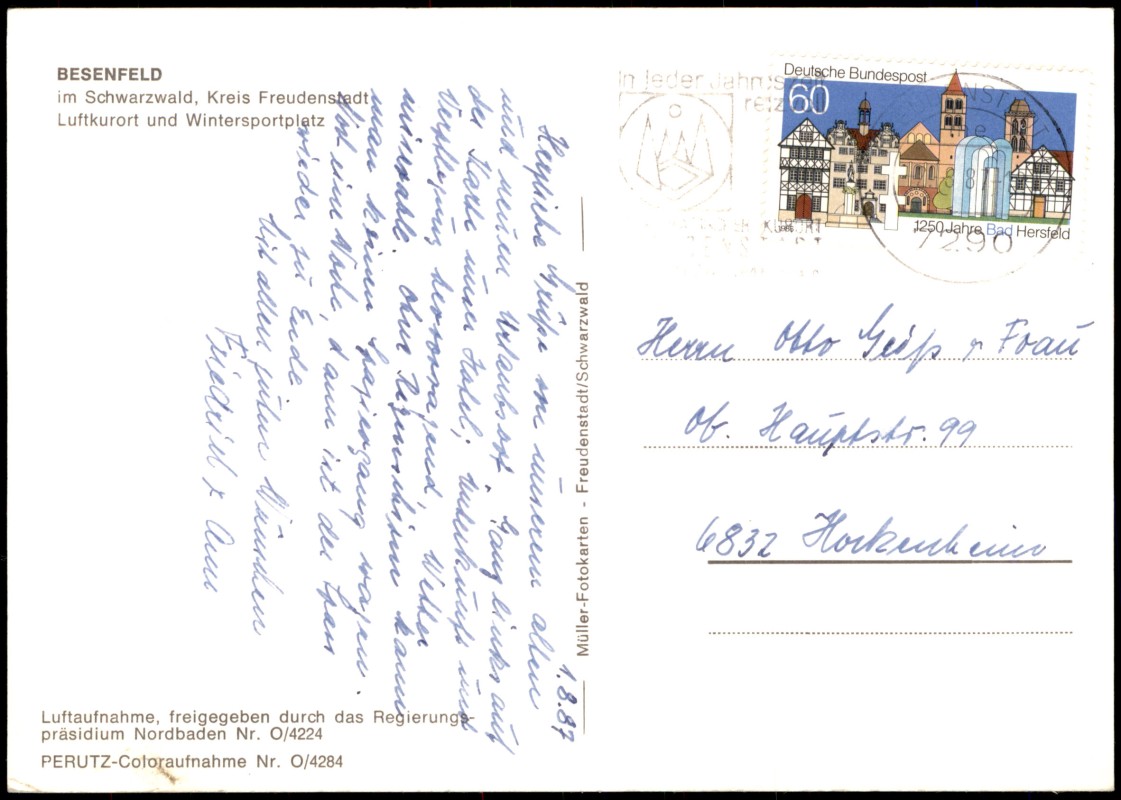 BESENFELD
im Schwarzwald, Kreis Freudenstadt
Luftkurort und Wintersportplatz
1.8.87
Herzliche Grüße von unserem alten
und neuen Urlaubsort. Ganz links auf
der Karte unser Hotel, Unterkunft und
Verpflegung hervorragend, Wetter
miserabel, ohne Regenschirm kann
man keinen Spaziergang wagen.
Noch eine Woche, dann ist der Spass
wieder zu Ende.
Mit allen guten Wünschen
Friedrich + Anni
Luftaufnahme, freigegeben durch das Regierungs-
präsidium Nordbaden Nr. O/4224
PERUTZ-Coloraufnahme Nr. O/4284
Müller-Fotokarten - Freudenstadt/Schwarzwald
In jeder Jahreszeit
KURORT
Deutsche Bundespost
60
1250 Jahre Bad Hersfeld
7290
Herrn Otto Geiß + Frau
Ob. Hauptstr. 99
6832 Hockenheim